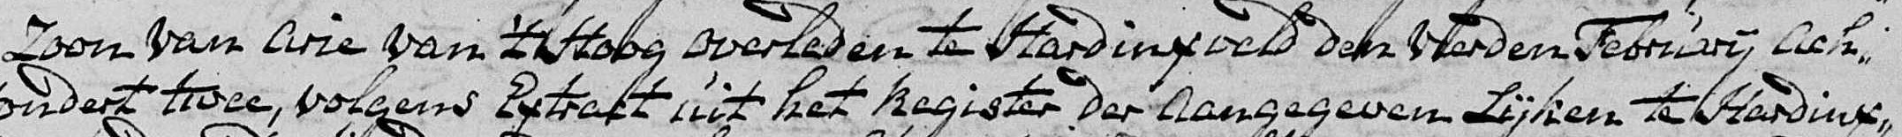 Zoon van Arie van 't Hoog overleden te Hardinxveld den Vierden Februarij Ach„
ondert twee, volgens Extract uit het Register der Aangegeven Lijken te Hardinx„